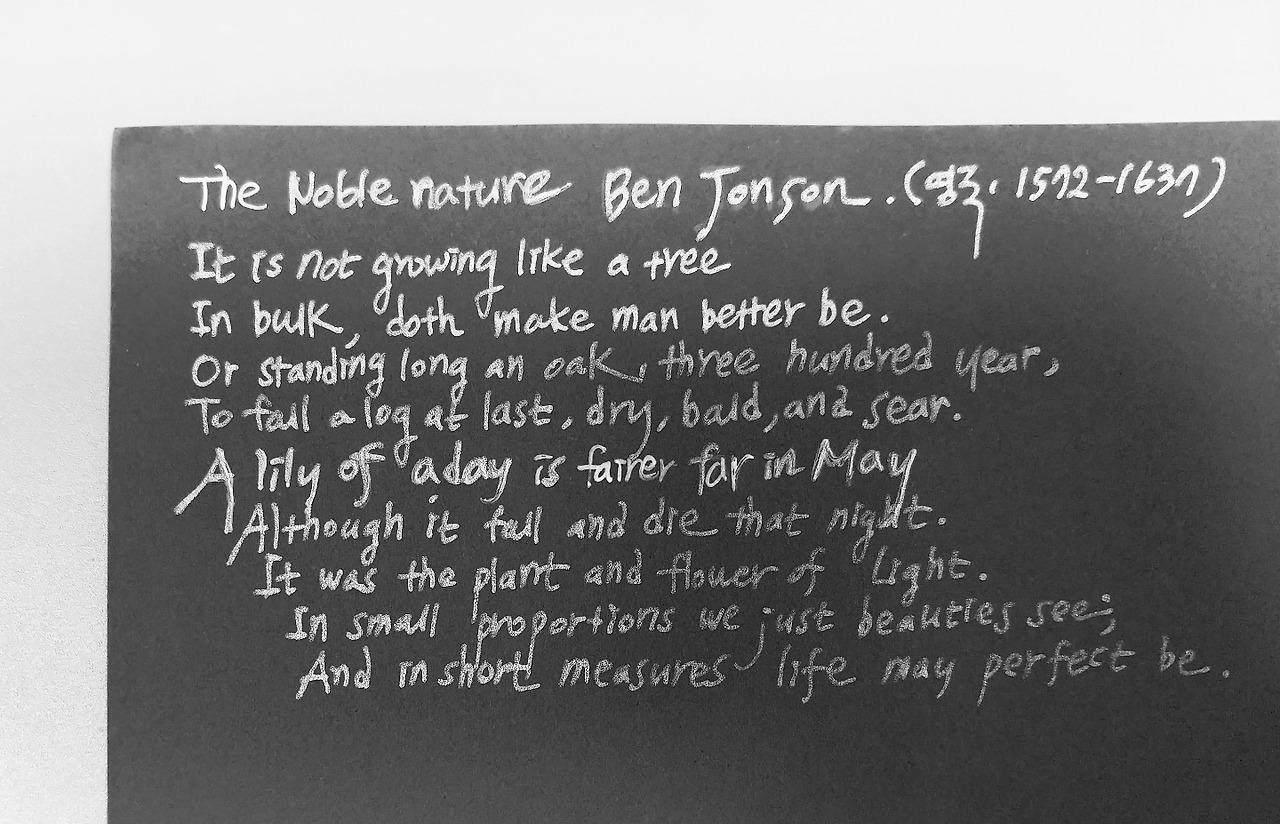 The Noble nature Ben Jonson. (영국. 1572-1637)
It is not growing like a tree
In bulk, doth make man better be.
Or standing long an oak, three hundred year,
To fall a log at last, dry, bald, and sear.
A lily of a day is fairer far in May
Although it fall and die that night.
It was the plant and flower of Light.
In small proportions we just beauties see;
And in short measures life may perfect be.